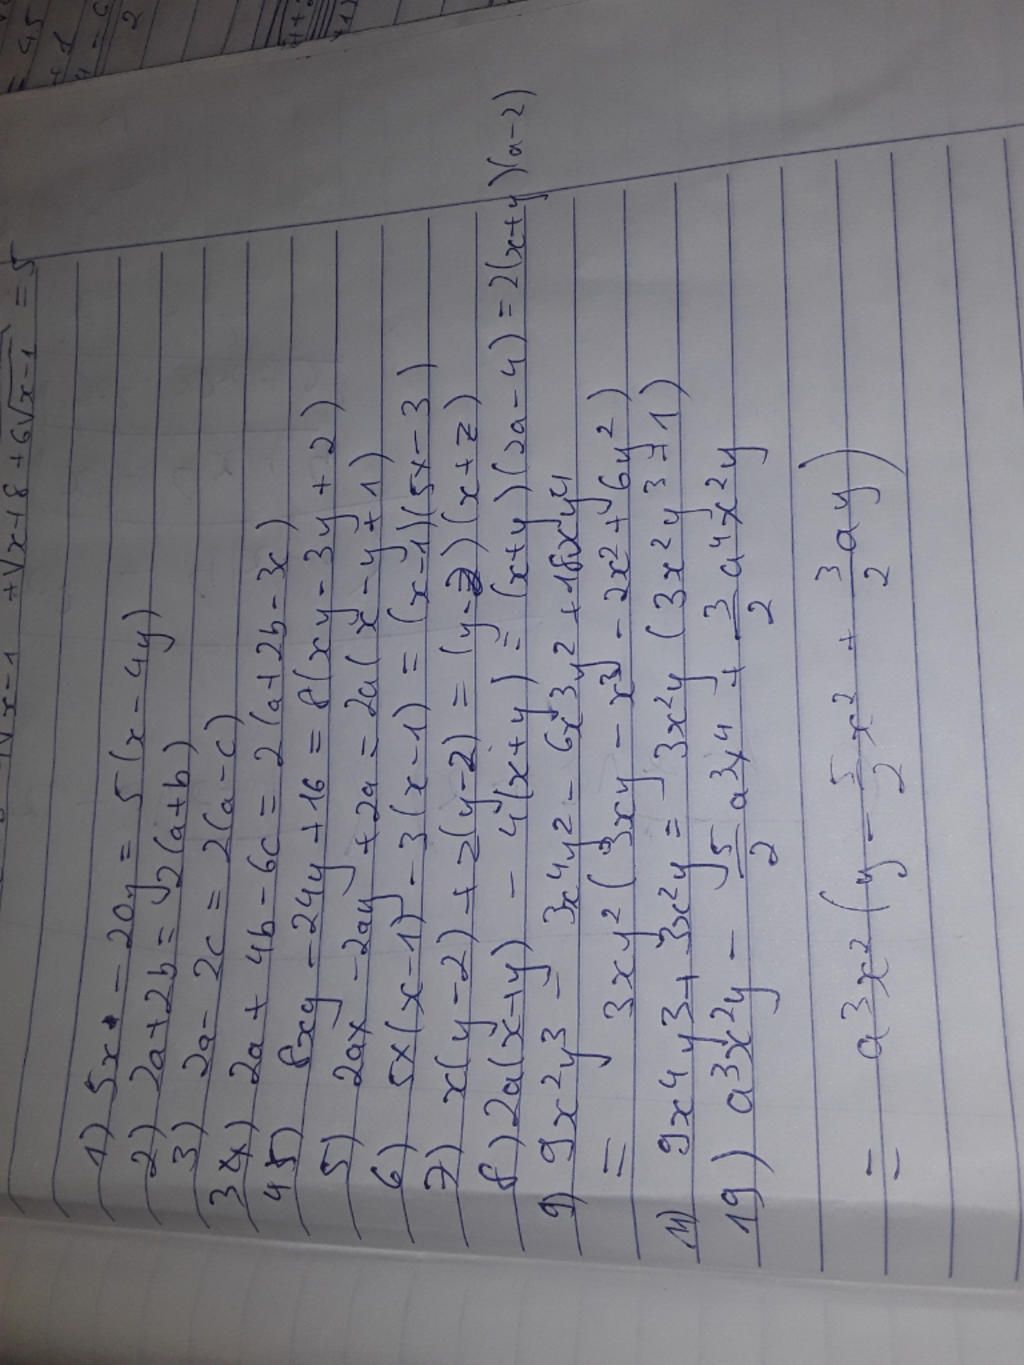 √x-1 + √x+8+6√x-1 = 5
1) 5x - 20y = 5(x - 4y)
2) 2a+2b = 2(a+b)
3) 2a - 2c = 2(a-c)
4) 2a + 4b - 6c = 2(a+2b-3c)
5) 8xy - 24y + 16 = 8(xy - 3y + 2)
5) 2ax - 2ay + 2a = 2a(x - y + 1)
6) 5x(x-1) - 3(x-1) = (x-1)(5x-3)
7) x(y-2) + z(y-2) = (y-2)(x+z)
8) 2a(x+y) - 4(x+y) = (x+y)(2a-4) = 2(x+y)(a-2)
9) 9x²y³ - 3x⁴y² - 6x³y² + 18xy⁴
= 3xy²(3xy - x³ - 2x² + 6y²)
11) 9x⁴y³ + 3x²y = 3x²y(3x²y³ + 1)
19) a³x²y - 5/2 a³x⁴ + 3/2 a⁴x²y
= a³x²(y - 5/2 x² + 3/2 ay)